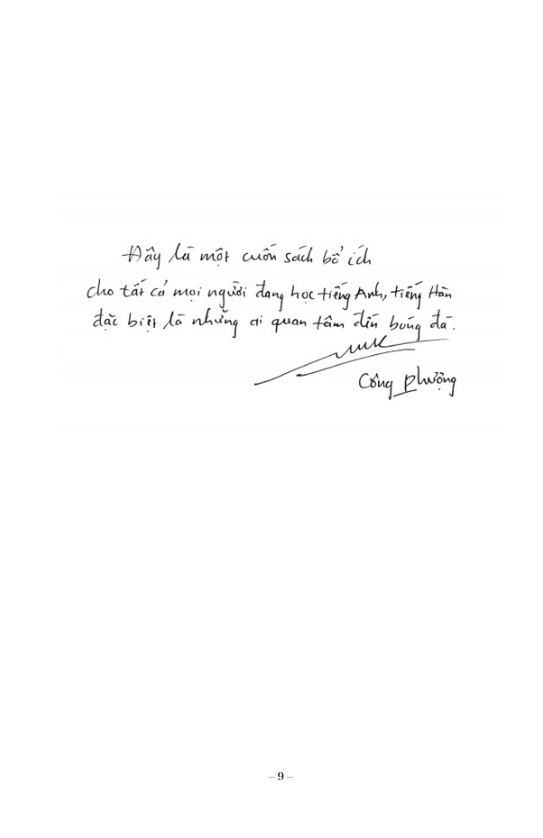 Đây là một cuốn sách bổ ích
cho tất cả mọi người đang học tiếng Anh, tiếng Hàn
đặc biệt là những ai quan tâm đến bóng đá.
Công Phượng
– 9 –